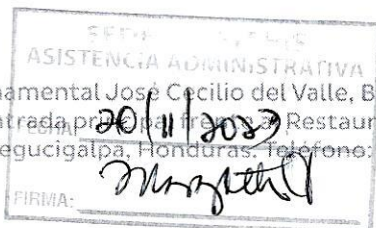 ASISTENCIA ADMINISTRATIVA
namental José Cecilio del Valle, B
trada principal frente a Restaur
FECHA: 20/11/2023
egucigalpa, Honduras. Teléfono:
FIRMA: